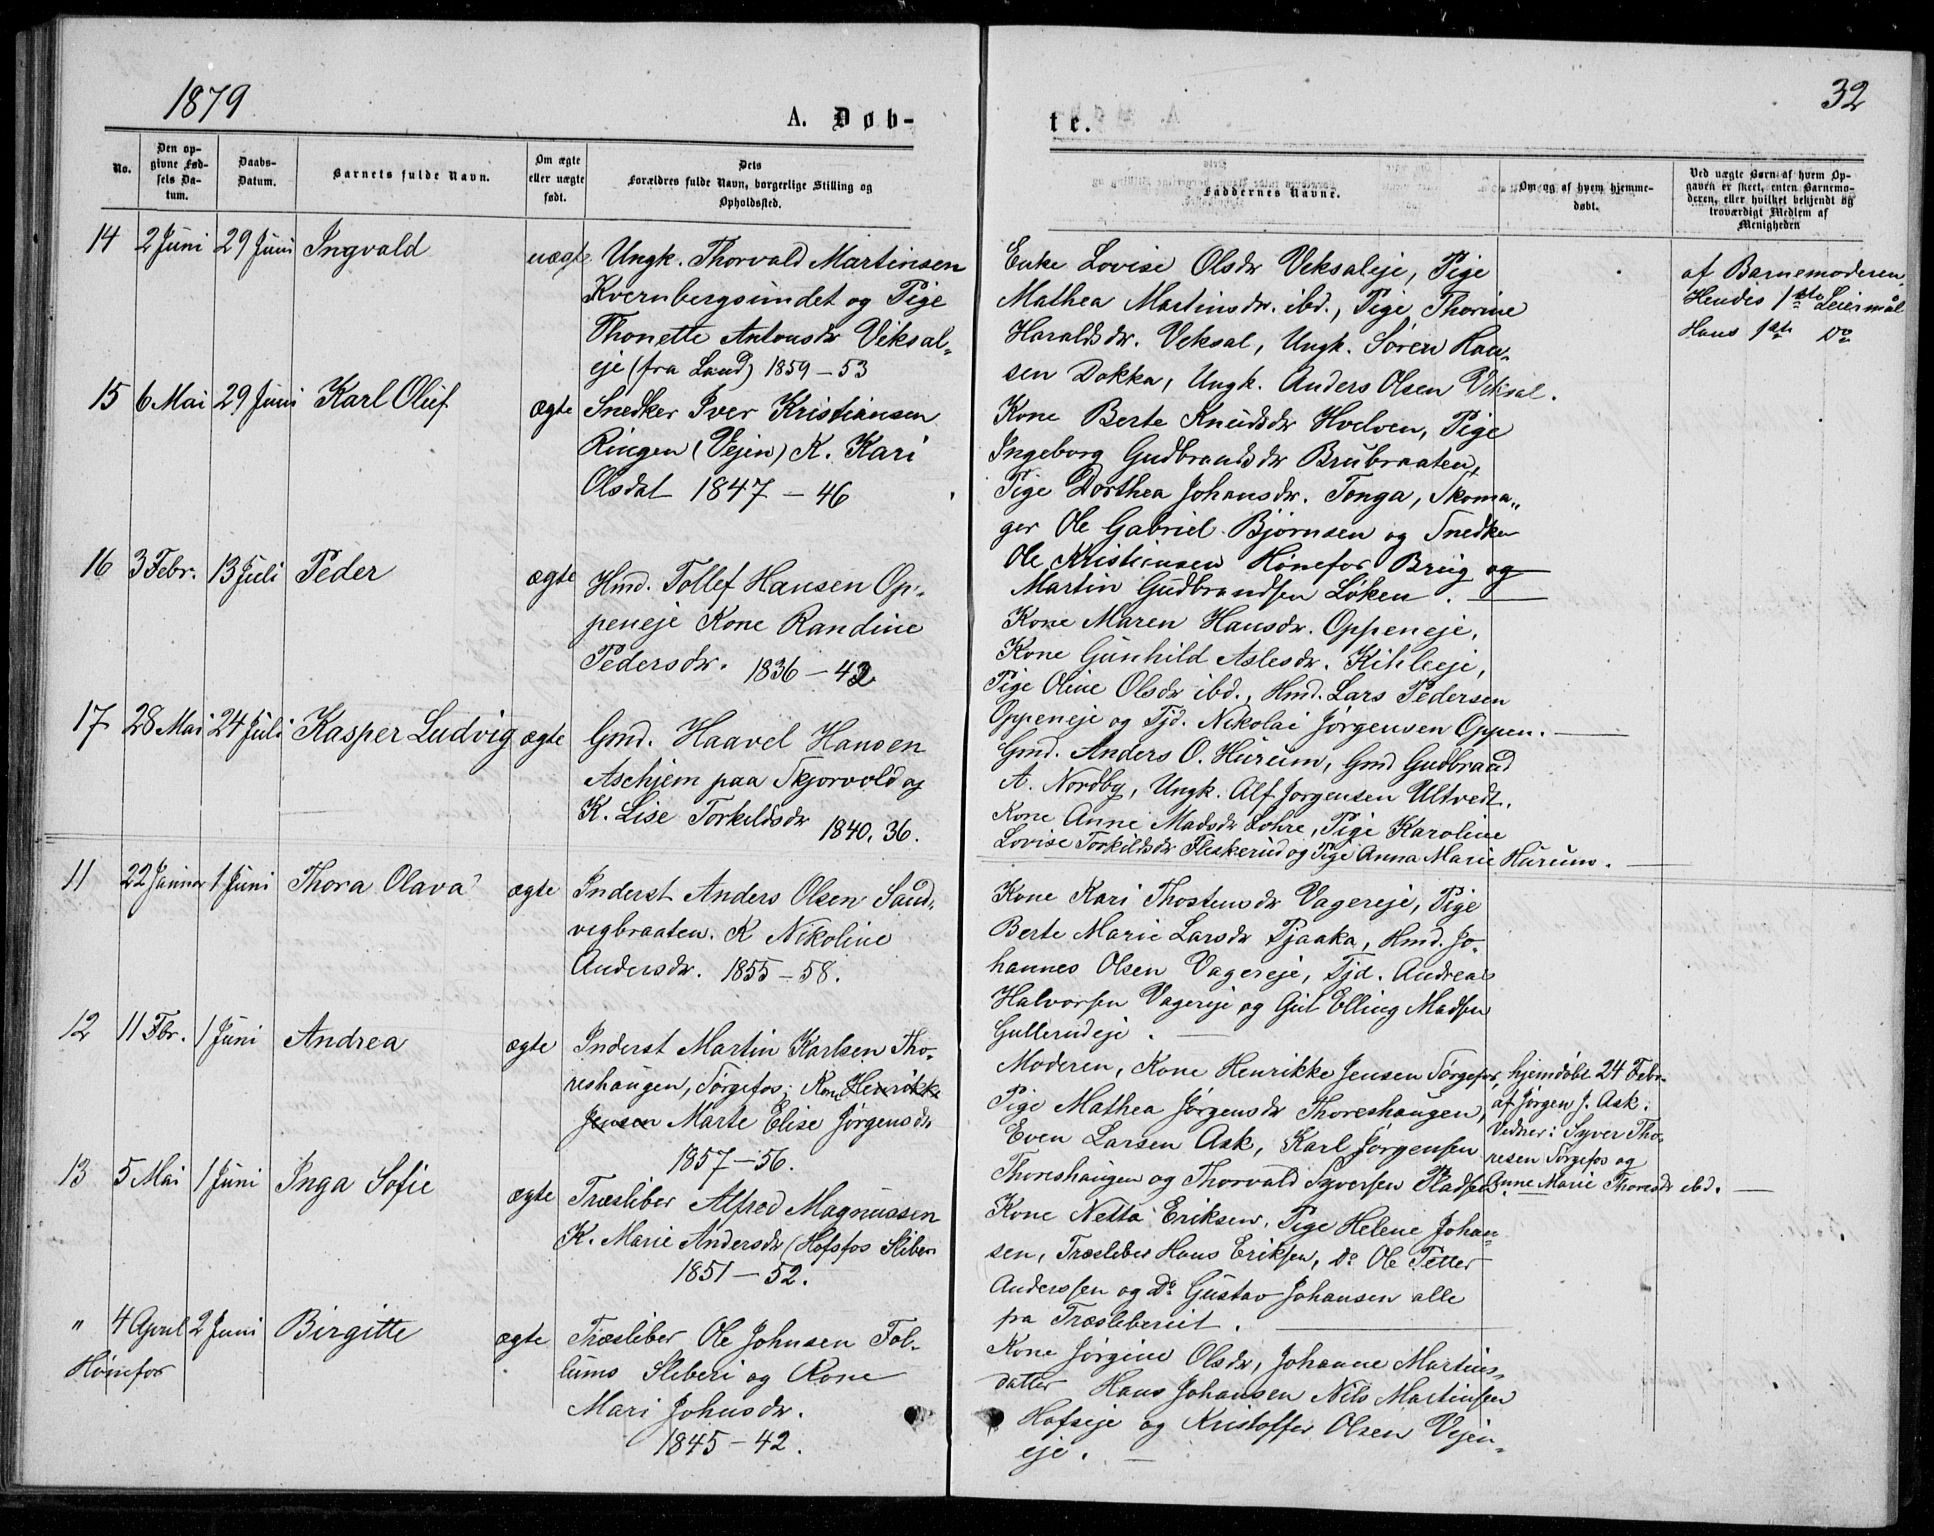 1879
A. Døb-
te.
32
No.
Den op-
givne Fød-
sels Da-
tum.
Daabs-
Datum.
Barnets fulde Navn.
Om ægte
eller uægte
født.
Dets
Forældres fulde Navn, borgerlige Stilling og
Opholdssted.
Faddernes Navne.
Om og af hvem hjemme-
døbt.
Ved uægte Børn af hvem Op-
gaven er skeet, enten Barnemo-
deren, eller hvilket bekjendt og
troværdigt Medlem af
Menigheden
14 2 Juni 29 Juni Ingvald uægte
Ungk. Thorvald Martinsen
Kvernbergsundet og Pige
Thonette Antonsdr Veksal-
eje (fra Land) 1859 - 53
Enke Lovise Olsdr Veksaleje, Pige
Mathea Martinsdr. ibd., Pige Thorine
Haraldsdr. Veksal, Ungk. Søren Han-
sen Dokka, Ungk. Anders Olsen Veksal.
af Barnemoderen
Hendes 1ste Leiermål
Hans 1ste Do
15 6 Mai 29 Juni Karl Oluf ægte
Snedker Iver Kristiansen
Ringen (Vejen) K. Kari
Olsdat 1847 - 46
Kone Berte Knudsdr Hvelven, Pige
Ingeborg Gudbrandsdr Brubraaten,
Pige Dorthea Johansdr. Tonga, Skoma-
ger Ole Gabriel Bjørnsen og Snedker
Ole Kristiansen Hønefos Brug og
Martin Gudbrandsen Løken.
16 3 Febr. 13 Juli Peder ægte
Hmd. Tollef Hansen Op-
peneje Kone Randine
Pedersdr. 1836 - 42
Kone Maren Hansdr. Oppeneje,
Kone Gunhild Aslesdr. Kihleeje,
Pige Oline Olsdr ibd., Hmd. Lars Pedersen
Oppeneje og Tjd. Nikolai Jørgensen Oppen.
17 28 Mai 24 Juli Kasper Ludvig ægte
Gmd. Haavel Hansen
Aschjem paa Skjorvold og
K. Lise Torkildsdr 1840, 36.
Gmd. Anders O. Hurum, Gmd Gudbrand
A. Nordby, Ungk. Alf Jørgensen Ultvedt,
Kone Anne Madsdr Lohre, Pige Karoline
Lovise Torkildsdr Fleskerud og Pige Anna Marie Hurum.
11 22 Januar 1 Juni Thora Olava ægte
Inderst Anders Olsen Sand-
vigbraaten. K Nikoline
Andersdr. 1855 - 58.
Kone Kari Thostensdr Vagereje, Pige
Berte Marie Larsdr Pjaaka, Hmd. Jo-
hannes Olsen Vagereje, Tjd. Andreas
Halvorsen Vagereje og Gut Elling Madsen
Gullerudeje.
12 11 Fbr. 1 Juni Andrea ægte
Inderst Martin Karlsen Tho-
reshaugen, Sørgefos; Kone Henrikke
Jensen Marte Elise Jørgensdr
1857 - 56.
Moderen, Kone Henrikke Jensen Sørgefos,
Pige Mathea Jørgensdr Thoreshaugen,
Even Larsen Ask, Karl Jørgensen
Thoreshaugen og Thorvald Syversen Pladsen.
hjemdøbt 24 Febr.
af Jørgen J. Ask.
Vidner: Syver Tho-
resen Sørgefos og
Anne Marie Thoresdr ibd.
13 5 Mai 1 Juni Inga Sofie ægte
Træsliber Alfred Magnussen
K. Marie Andersdr (Hofsfos Sliberi
1851 - 52.
Kone Netta Eriksen, Pige Helene Johan-
sen, Træsliber Hans Eriksen, Do Ole Petter
Anderssen og Do Gustav Johansen alle
pa Træsliberiet.
" 4 April 2 Juni Birgitte ægte
Hønefos
Træsliber Ole Johnsen Fol-
lums Sliberi og Kone
Mari Johnsdr.
1845 - 42.
Kone Jørgine Olsdr, Johanne Martins-
datter Hans Johansen Nils Martinsen
Hofseje og Kristoffer Olsen Vejen-
eje.